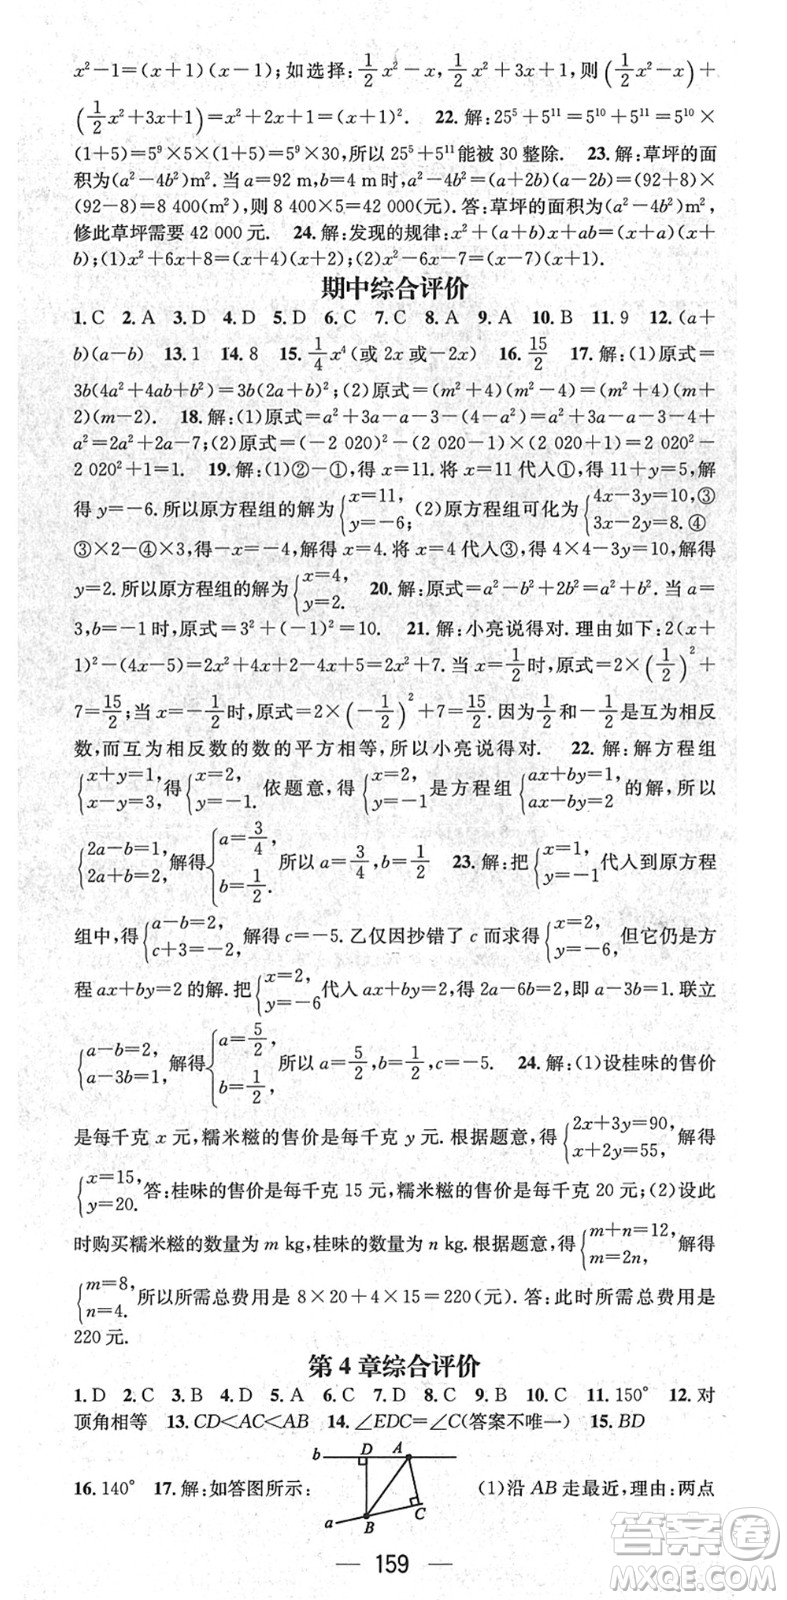 x²－1＝(x＋1)(x－1);如选择:1/2x²－x,1/2x²＋3x＋1,则(1/2x²－x)＋
(1/2x²＋3x＋1)＝x²＋2x＋1＝(x＋1)². 22.解:25⁵＋5¹¹＝5¹⁰＋5¹¹＝5¹⁰×
(1＋5)＝5⁹×5×(1＋5)＝5⁹×30,所以25⁵＋5¹¹能被30整除. 23.解:草坪的面
积为(a²－4b²)m².当a＝92 m,b＝4 m时,(a²－4b²)＝(a＋2b)(a－2b)＝(92＋8)×
(92－8)＝8 400(m²),则8 400×5＝42 000(元).答:草坪的面积为(a²－4b²)m²,
修此草坪需要42 000元. 24.解:发现的规律:x²＋(a＋b)x＋ab＝(x＋a)(x＋
b);(1)x²＋6x＋8＝(x＋4)(x＋2);(2)x²－6x－7＝(x－7)(x＋1).
期中综合评价
1.C 2.A 3.D 4.D 5.D 6.C 7.C 8.A 9.A 10.B 11.9 12.(a＋
b)(a－b) 13.1 14.8 15.1/4x⁴(或2x或－2x) 16.15/2 17.解:(1)原式＝
3b(4a²＋4ab＋b²)＝3b(2a＋b)²;(2)原式＝(m²＋4)(m²－4)＝(m²＋4)(m＋
2)(m－2). 18.解:(1)原式＝a²＋3a－a－3－(4－a²)＝a²＋3a－a－3－4＋
a²＝2a²＋2a－7;(2)原式＝(－2 020)²－(2 020－1)×(2 020＋1)＝2 020²－
2 020²＋1＝1. 19.解:(1)②－①,得x＝11.将x＝11代入①,得11＋y＝5,解
得y＝－6.所以原方程组的解为{x＝11,y＝－6;(2)原方程组可化为{4x－3y＝10,③3x－2y＝8.④
③×2－④×3,得－x＝－4,解得x＝4.将x＝4代入③,得4×4－3y＝10,解得
y＝2.所以原方程组的解为{x＝4,y＝2. 20.解:原式＝a²－b²＋2b²＝a²＋b².当a＝
3,b＝－1时,原式＝3²＋(－1)²＝10. 21.解:小亮说得对.理由如下:2(x＋
1)²－(4x－5)＝2x²＋4x＋2－4x＋5＝2x²＋7.当x＝1/2时,原式＝2×(1/2)²＋
7＝15/2;当x＝－1/2时,原式＝2×(－1/2)²＋7＝15/2.因为1/2和－1/2是互为相反
数,而互为相反数的数的平方相等,所以小亮说得对. 22.解:解方程组
{x＋y＝1,x－y＝3,得{x＝2,y＝－1.依题意,得{x＝2,y＝－1是方程组{ax＋by＝1,ax－by＝2的解,所以
{2a－b＝1,2a＋b＝2,解得{a＝3/4,b＝1/2.所以a＝3/4,b＝1/2. 23.解:把{x＝1,y＝－1代入到原方程
组中,得{a－b＝2,c＋3＝－2,解得c＝－5.乙仅因抄错了c而求得{x＝2,y＝－6,但它仍是方
程ax＋by＝2的解.把{x＝2,y＝－6代入ax＋by＝2,得2a－6b＝2,即a－3b＝1.联立
{a－b＝2,a－3b＝1,解得{a＝5/2,b＝1/2,所以a＝5/2,b＝1/2,c＝－5. 24.解:(1)设桂味的售价
是每千克x元,糯米糍的售价是每千克y元.根据题意,得{2x＋3y＝90,x＋2y＝55,解得
{x＝15,y＝20.答:桂味的售价是每千克15元,糯米糍的售价是每千克20元;(2)设此
时购买糯米糍的数量为m kg,桂味的数量为n kg.根据题意,得{m＋n＝12,m＝2n,解得
{m＝8,n＝4.所以所需总费用是8×20＋4×15＝220(元).答:此时所需总费用是
220元.
第4章综合评价
1.D 2.C 3.B 4.D 5.A 6.C 7.B 8.D 9.B 10.C 11.150° 12.对
顶角相等 13.CD＜AC＜AB 14.∠EDC＝∠C(答案不唯一) 15.BD
16.140° 17.解:如答图所示: (1)沿AB走最近,理由:两点
b D A
C
a B
159
答案圈
MXQE.COM